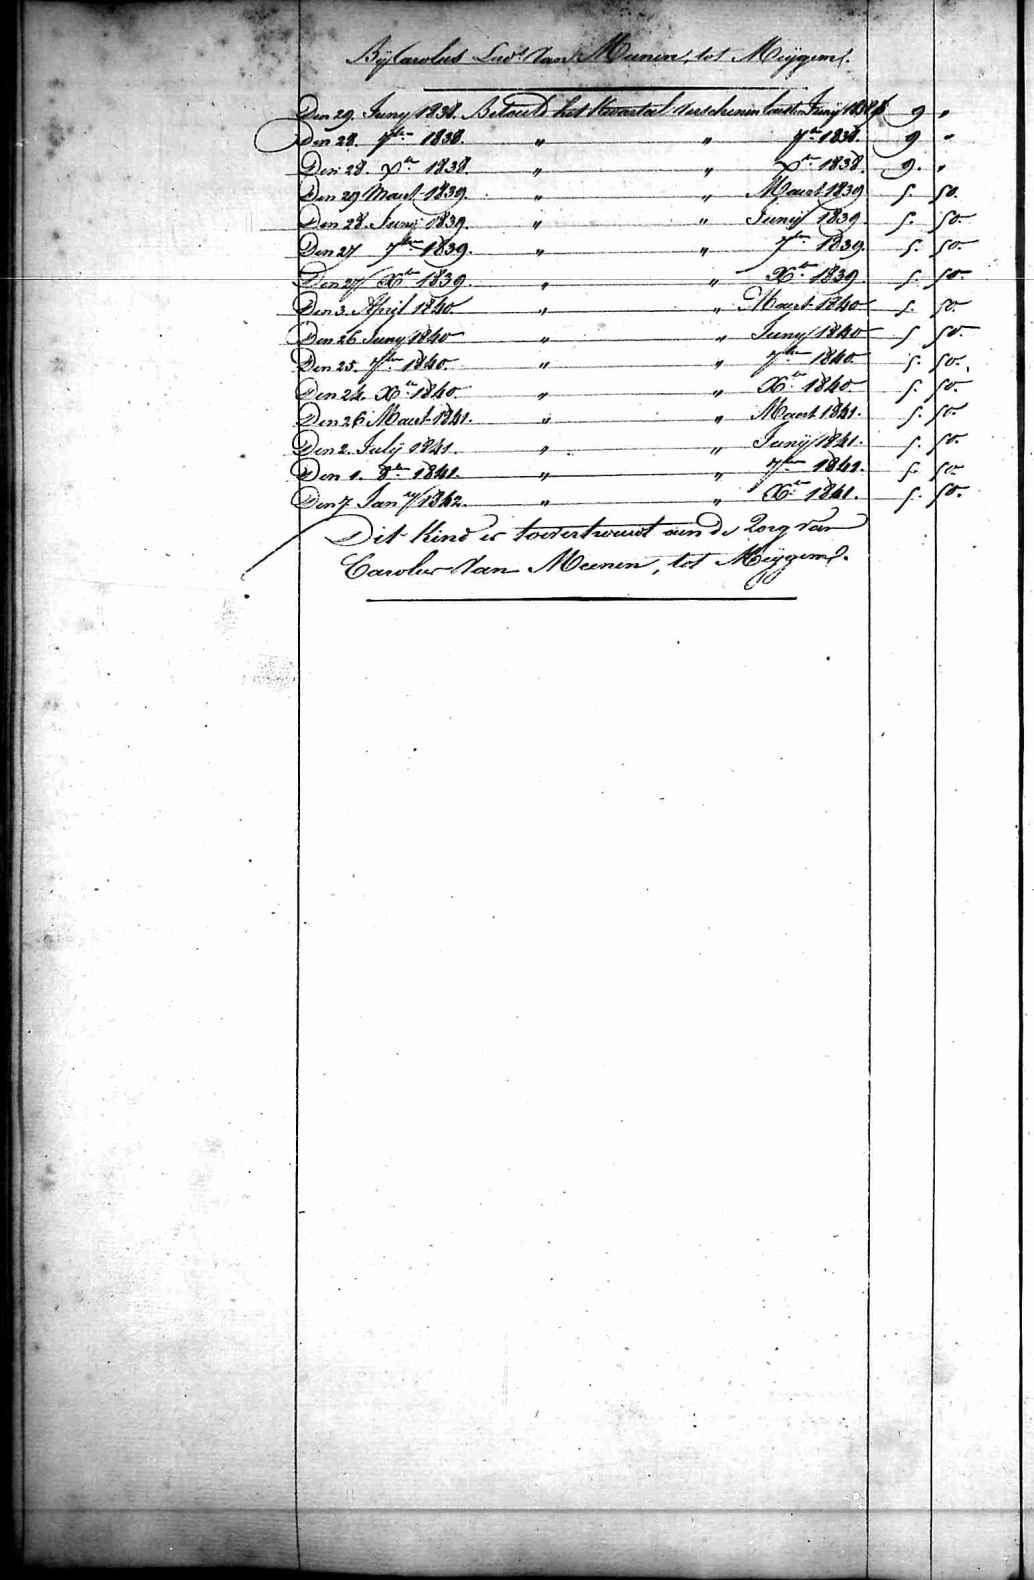 Bij Carolus Lud.s Van Meenen, tot Meijgem.
Den 29. Juny 1838. Betaeld het kwartal verschenen lasten Juny 1838 f 9 "
Den 28. 7ber 1838. " " 7ber 1838. 9 "
Den 28. Xber 1838. " " Xber 1838. 9. "
Den 29 Maert 1839. " " Maert 1839 5. 50.
Den 28. Junij 1839. " " Junij 1839 5. 50
Den 27 7ber 1839. " " 7ber 1839. 5. 50
Den 27 Xber 1839. " " Xber 1839 5. 50
Den 3. April 1840. " " Maert 1840 5. 50.
Den 26 Juny 1840 " " Juny 1840 5 50.
Den 25. 7ber 1840. " " 7ber 1840. 5. 50.
Den 24. Xber 1840. " " Xber 1840 5. 50.
Den 26 Maert 1841. " " Maert 1841. 5. 50.
Den 2. Julij 1841. " " Junij 1841. 5. 50.
Den 1. 8ber 1841. " " 7ber 1841. 5. 50
Den 7. Jan.ry 1842. " " Xber 1841. 5. 50.
Dit kind is toevertrouwt aen de Zorg van
Carolus Van Meenen, tot Meijgem.